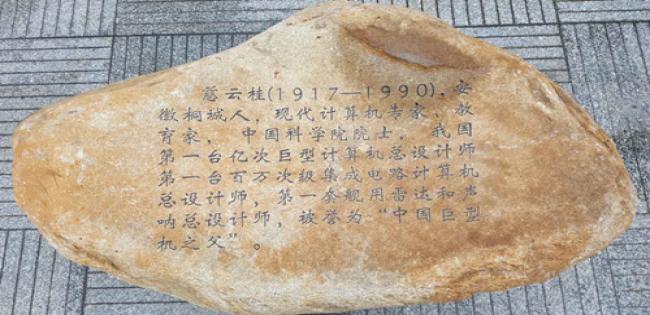 慈云桂(1917—1990)，安
徽桐城人，现代计算机专家、教
育家，中国科学院院士，我国
第一台亿次巨型计算机总设计师
第一台百万次级集成电路计算机
总设计师，第一套舰用雷达和声
呐总设计师，被誉为“中国巨型
机之父”。